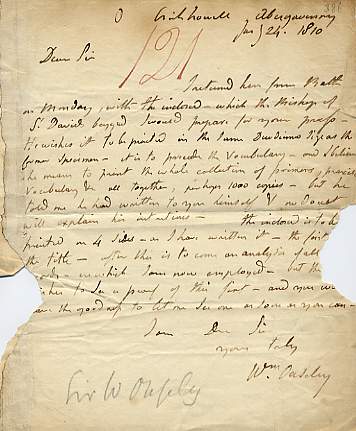 Crickhowell Abergavenny
Jany 24. 1810
386
Dear Sir
121
I returned here from Bath
on Monday, with the inclosed - which the Bishop of
St. Davids begged I would prepare for your press -
He wishes it to be printed in the same Duodecimo Size as the
former Specimen - it is to precede the Vocabulary - and I believe
he means to print the whole collection of primers, praxis,
Vocabulary &c all together, perhaps 1000 copies - but he
told me he had written to you himself & no doubt
will explain his intentions - the inclosed is to be
printed on 4 sides - as I have written it - the first
the title - after this is to come an analysis of all
words - on which I am now employed - but the
wishes to see a proof of this first - and you will
have the goodness to let me see one as soon as you can -
I am Dear Sir
yours truly
Wm. Ouseley
Sir W Ouseley